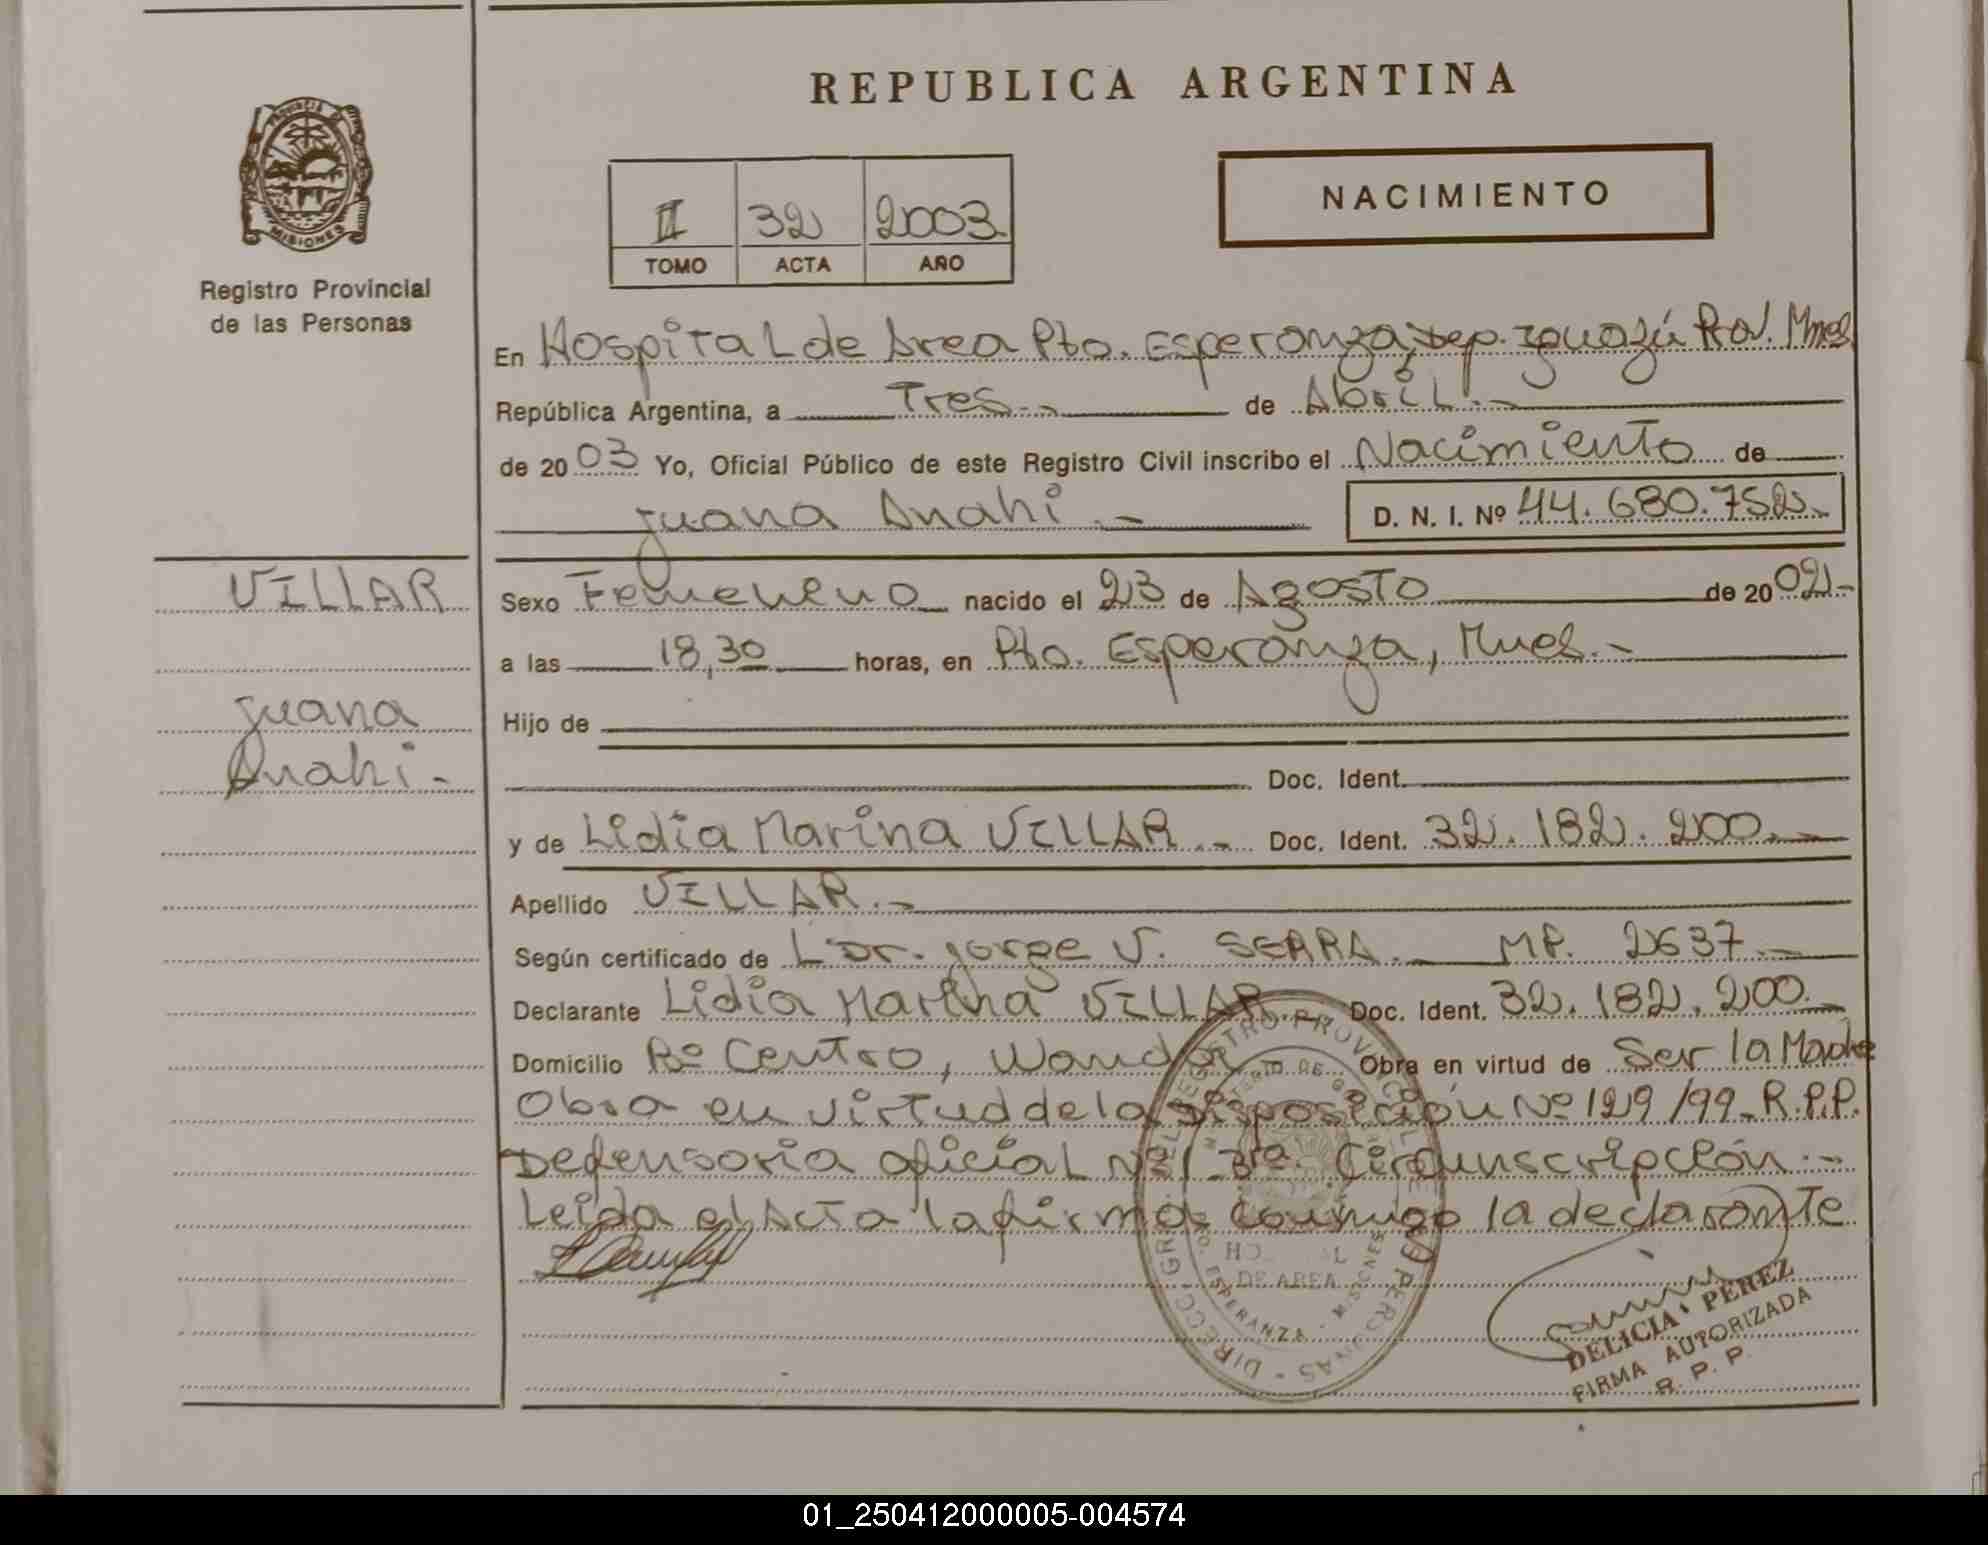 REPUBLICA ARGENTINA
PROVINCIA DE
MISIONES
Registro Provincial
de las Personas
II 32 2003
TOMO ACTA AÑO
NACIMIENTO
En Hospital de Area Pto. Esperanza, Dep. Iguazú Prov. Mnes
República Argentina, a Tres.- de Abril.-
de 20 03 Yo, Oficial Público de este Registro Civil inscribo el Nacimiento de
Juana Anahi.- D. N. I. Nº 44.680.752.-
VILLAR
Juana
Anahi.-
Sexo Femenino nacido el 23 de Agosto de 20 02.-
a las 18,30 horas, en Pto. Esperanza, Mnes.-
Hijo de
Doc. Ident.
y de Lidia Marina VILLAR.- Doc. Ident. 32.182.200.-
Apellido VILLAR.-
Según certificado de Dr. Jorge V. SERRA. MP. 2637.-
Declarante Lidia Marina VILLAR Doc. Ident. 32.182.200.-
Domicilio Bº Centro, Wanda Obra en virtud de Ser la Madre
Obra en virtud de la Disposición Nº 129/99-R.P.P.
Defensoria oficial Nº 1 3ra. Circunscripción.-
Leida el Acta la firma conmigo la declarante
HO AL
DE AREA
ESPERANZA - MISIONES
DELICIA PEREZ
FIRMA AUTORIZADA
R. P. P.
01_250412000005-004574